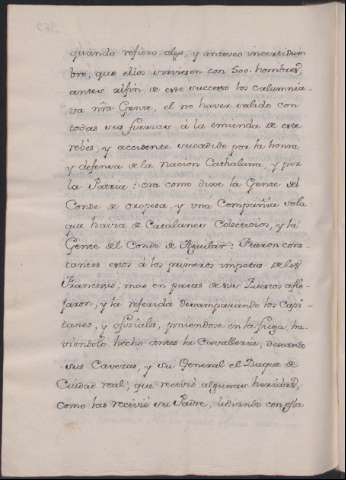 quando refiero algo, y anteveo incertidum
bre, que ellos vinviesen con 500. hombres,
antes al fin de este successo los calumnia-
va n̄ra Gente, el no haver salido con
todas sus fuerzas á la emienda de este
revés, y accidente sucedido por la honra
y defensa de la Nacion Cathalana, y por
la Patria: era como dixe la Gente del
Conde de oropesa, y una Compañia sola
que havia de Catalanes Colecticios, y la
Gente del Conde de Aguilar: Fueron cons-
tantes estos á los primeros impetus de los
Franceses, mas en partes de sus Puestos aflo-
jaron, y la referida desamparando los Capi-
tanes, y oficiales, poniendose en la fuga, ha-
viendolo hecho antes la Cavalleria, dexando
sus Cavezas, y su General el Duque de
Ciudad real; que recivió algunas heridas,
como las recivió su Padre, librando con esta